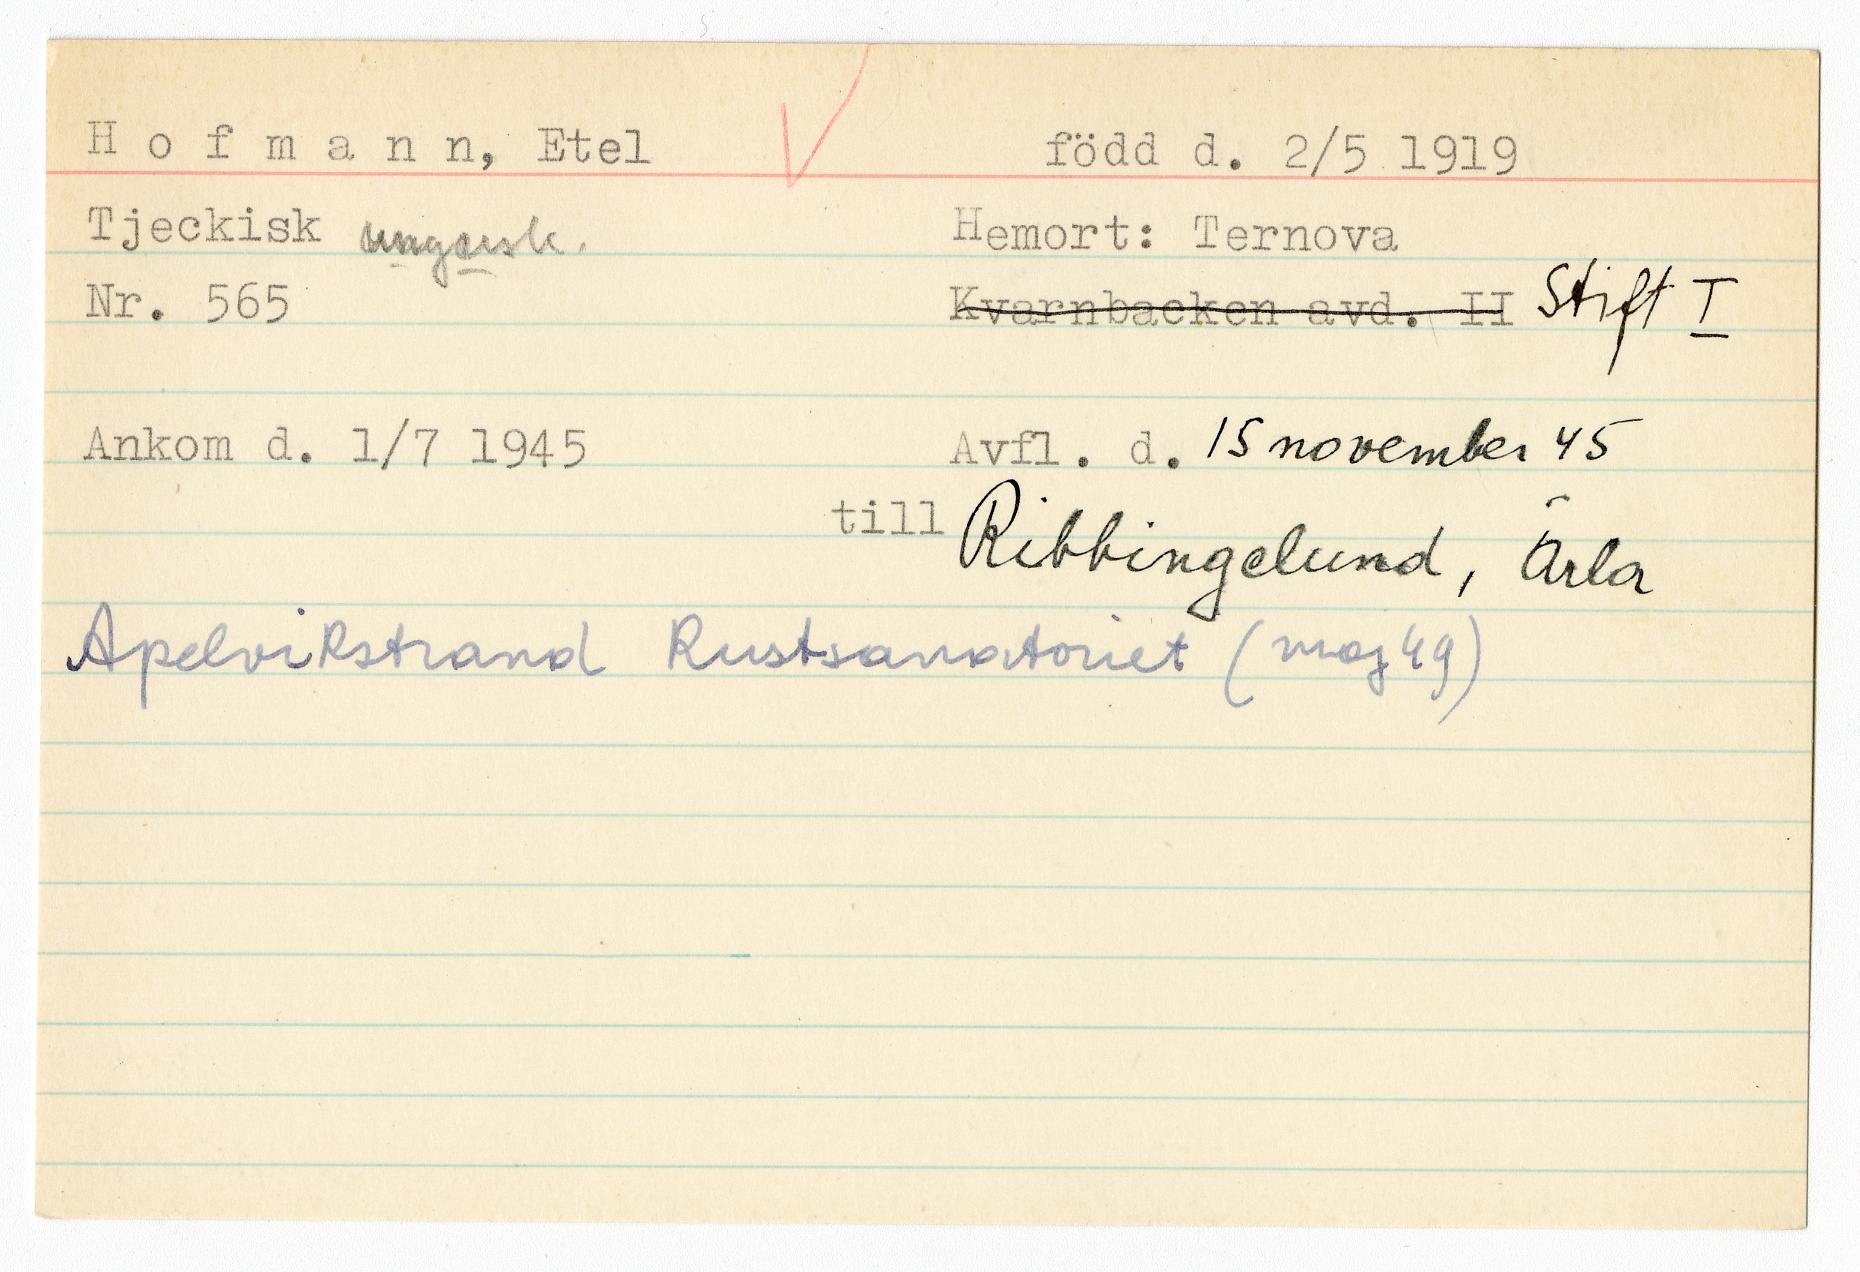 Hofmann, Etel född d. 2/5 1919
Tjeckisk ungarsk. Hemort: Ternova
Nr. 565 Kvarnbacken avd. II Stift I
Ankom d. 1/7 1945 Avfl. d. 15 november 45
till Ribbingelund, Ärla
Apelvikstrand Kustsanatoriet (maj 49)